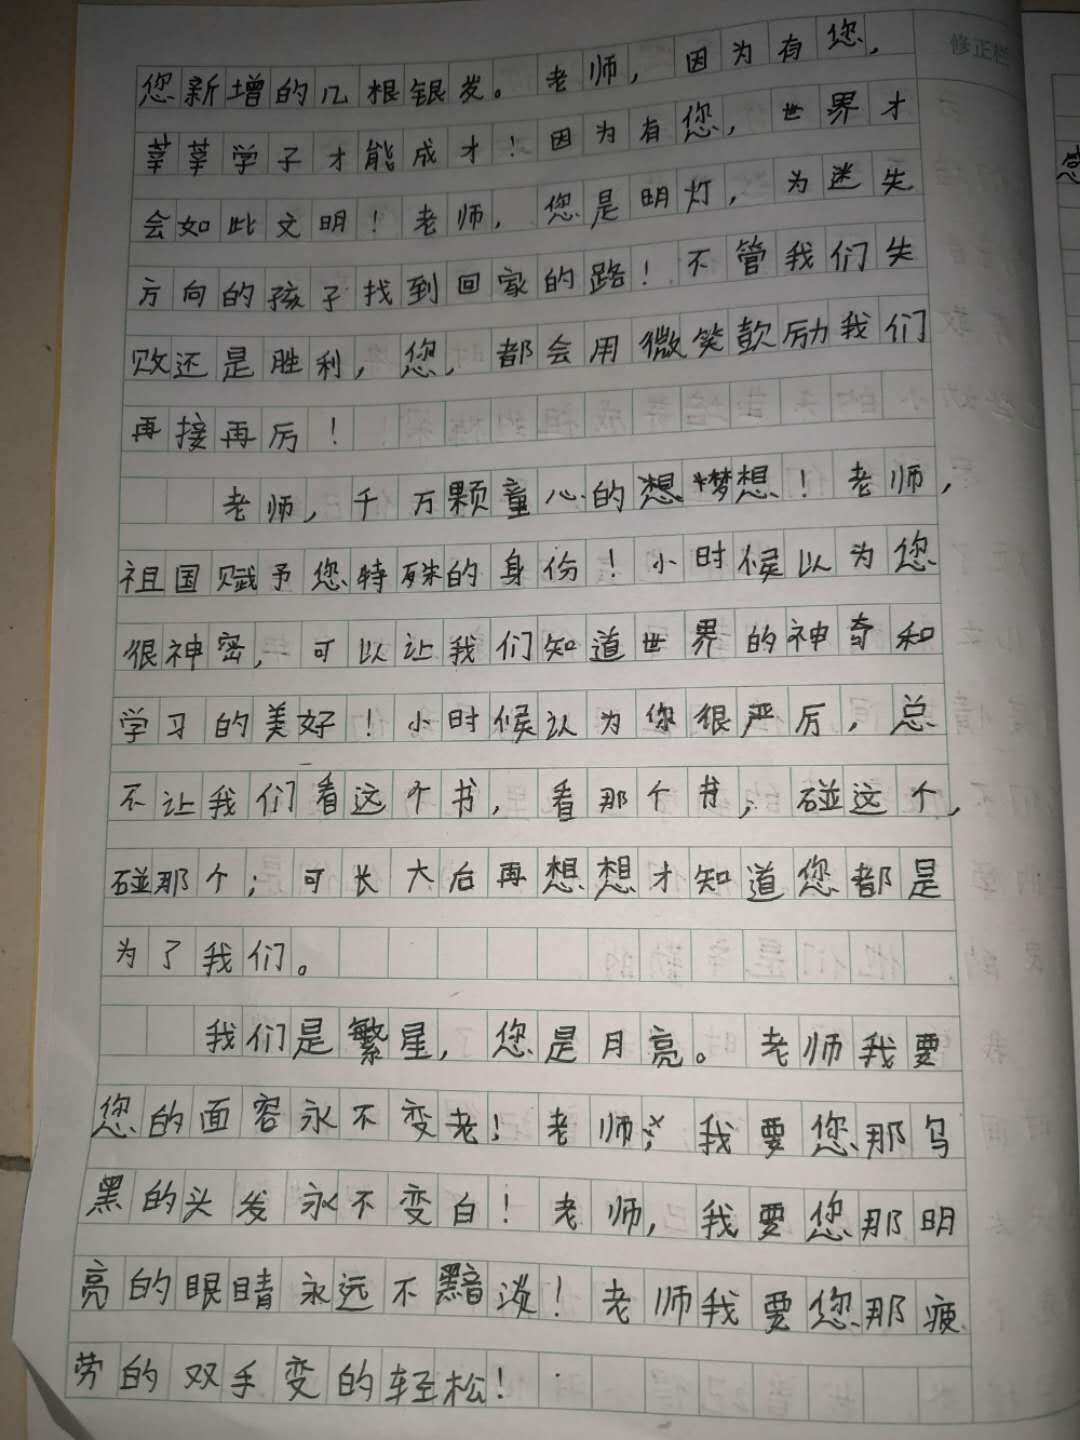 修正栏
您新增的几根银发。老师，因为有您，
莘莘学子才能成才！因为有您，世界才
会如此文明！老师，您是明灯，为迷失
方向的孩子找到回家的路！不管我们失
败还是胜利，您，都会用微笑歖励我们
再接再厉！
老师，千万颗童心的想梦想！老师，
祖国赋予您特殊的身份！小时候以为您
很神密，可以让我们知道世界的神奇和
学习的美好！小时候认为你很严厉，总
不让我们看这个书，看那个书；碰这个，
碰那个；可长大后再想想才知道您都是
为了我们。
我们是繁星，您是月亮。老师我要
您的面容永不变老！老师，我要您那乌
黑的头发永不变白！老师，我要您那明
亮的眼睛永远不黯淡！老师我要您那疲
劳的双手变的轻松！